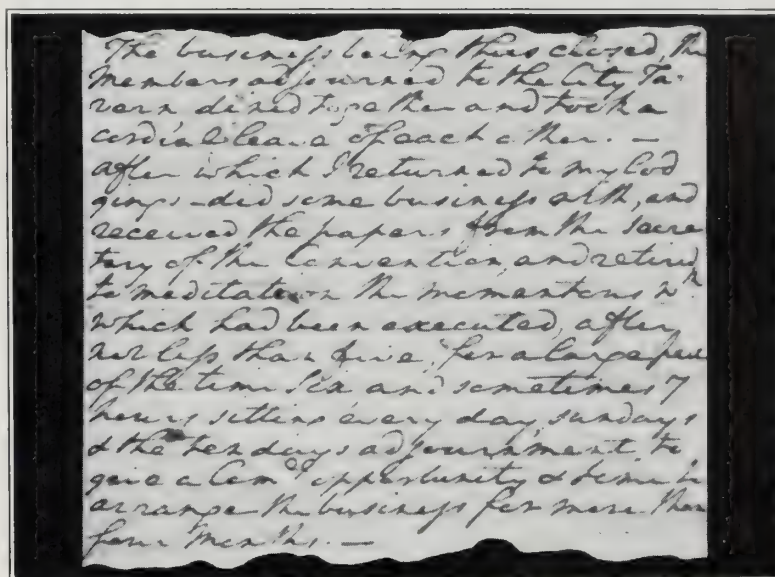 The business being thus closed, the
Members adjourned to the City Ta-
vern dined together and took a
cordial leave of each other. —
after which I returned to my lod
gings – did some business with, and
received the papers from the secre
tary of the Convention, and retired
to meditate on the momentous wk
which had been executed, after
not less than five, for a large part
of the time six and sometimes 7
hours sitting every day, sundays
& the ten days adjournment to
give a Comee opportunity & time to
arrange the business for more than
four Months. —